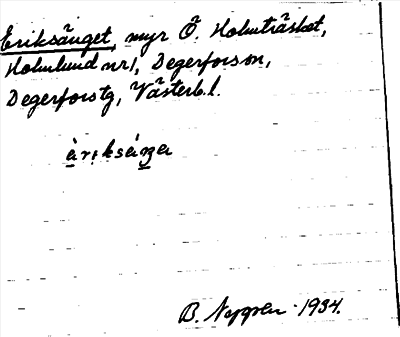 Eriksänget, myr Ö. Holmträsket,
Holmlund nr 1, Degerforssn,
Degerforstg, Västerb. l.
B. Nygren 1934.